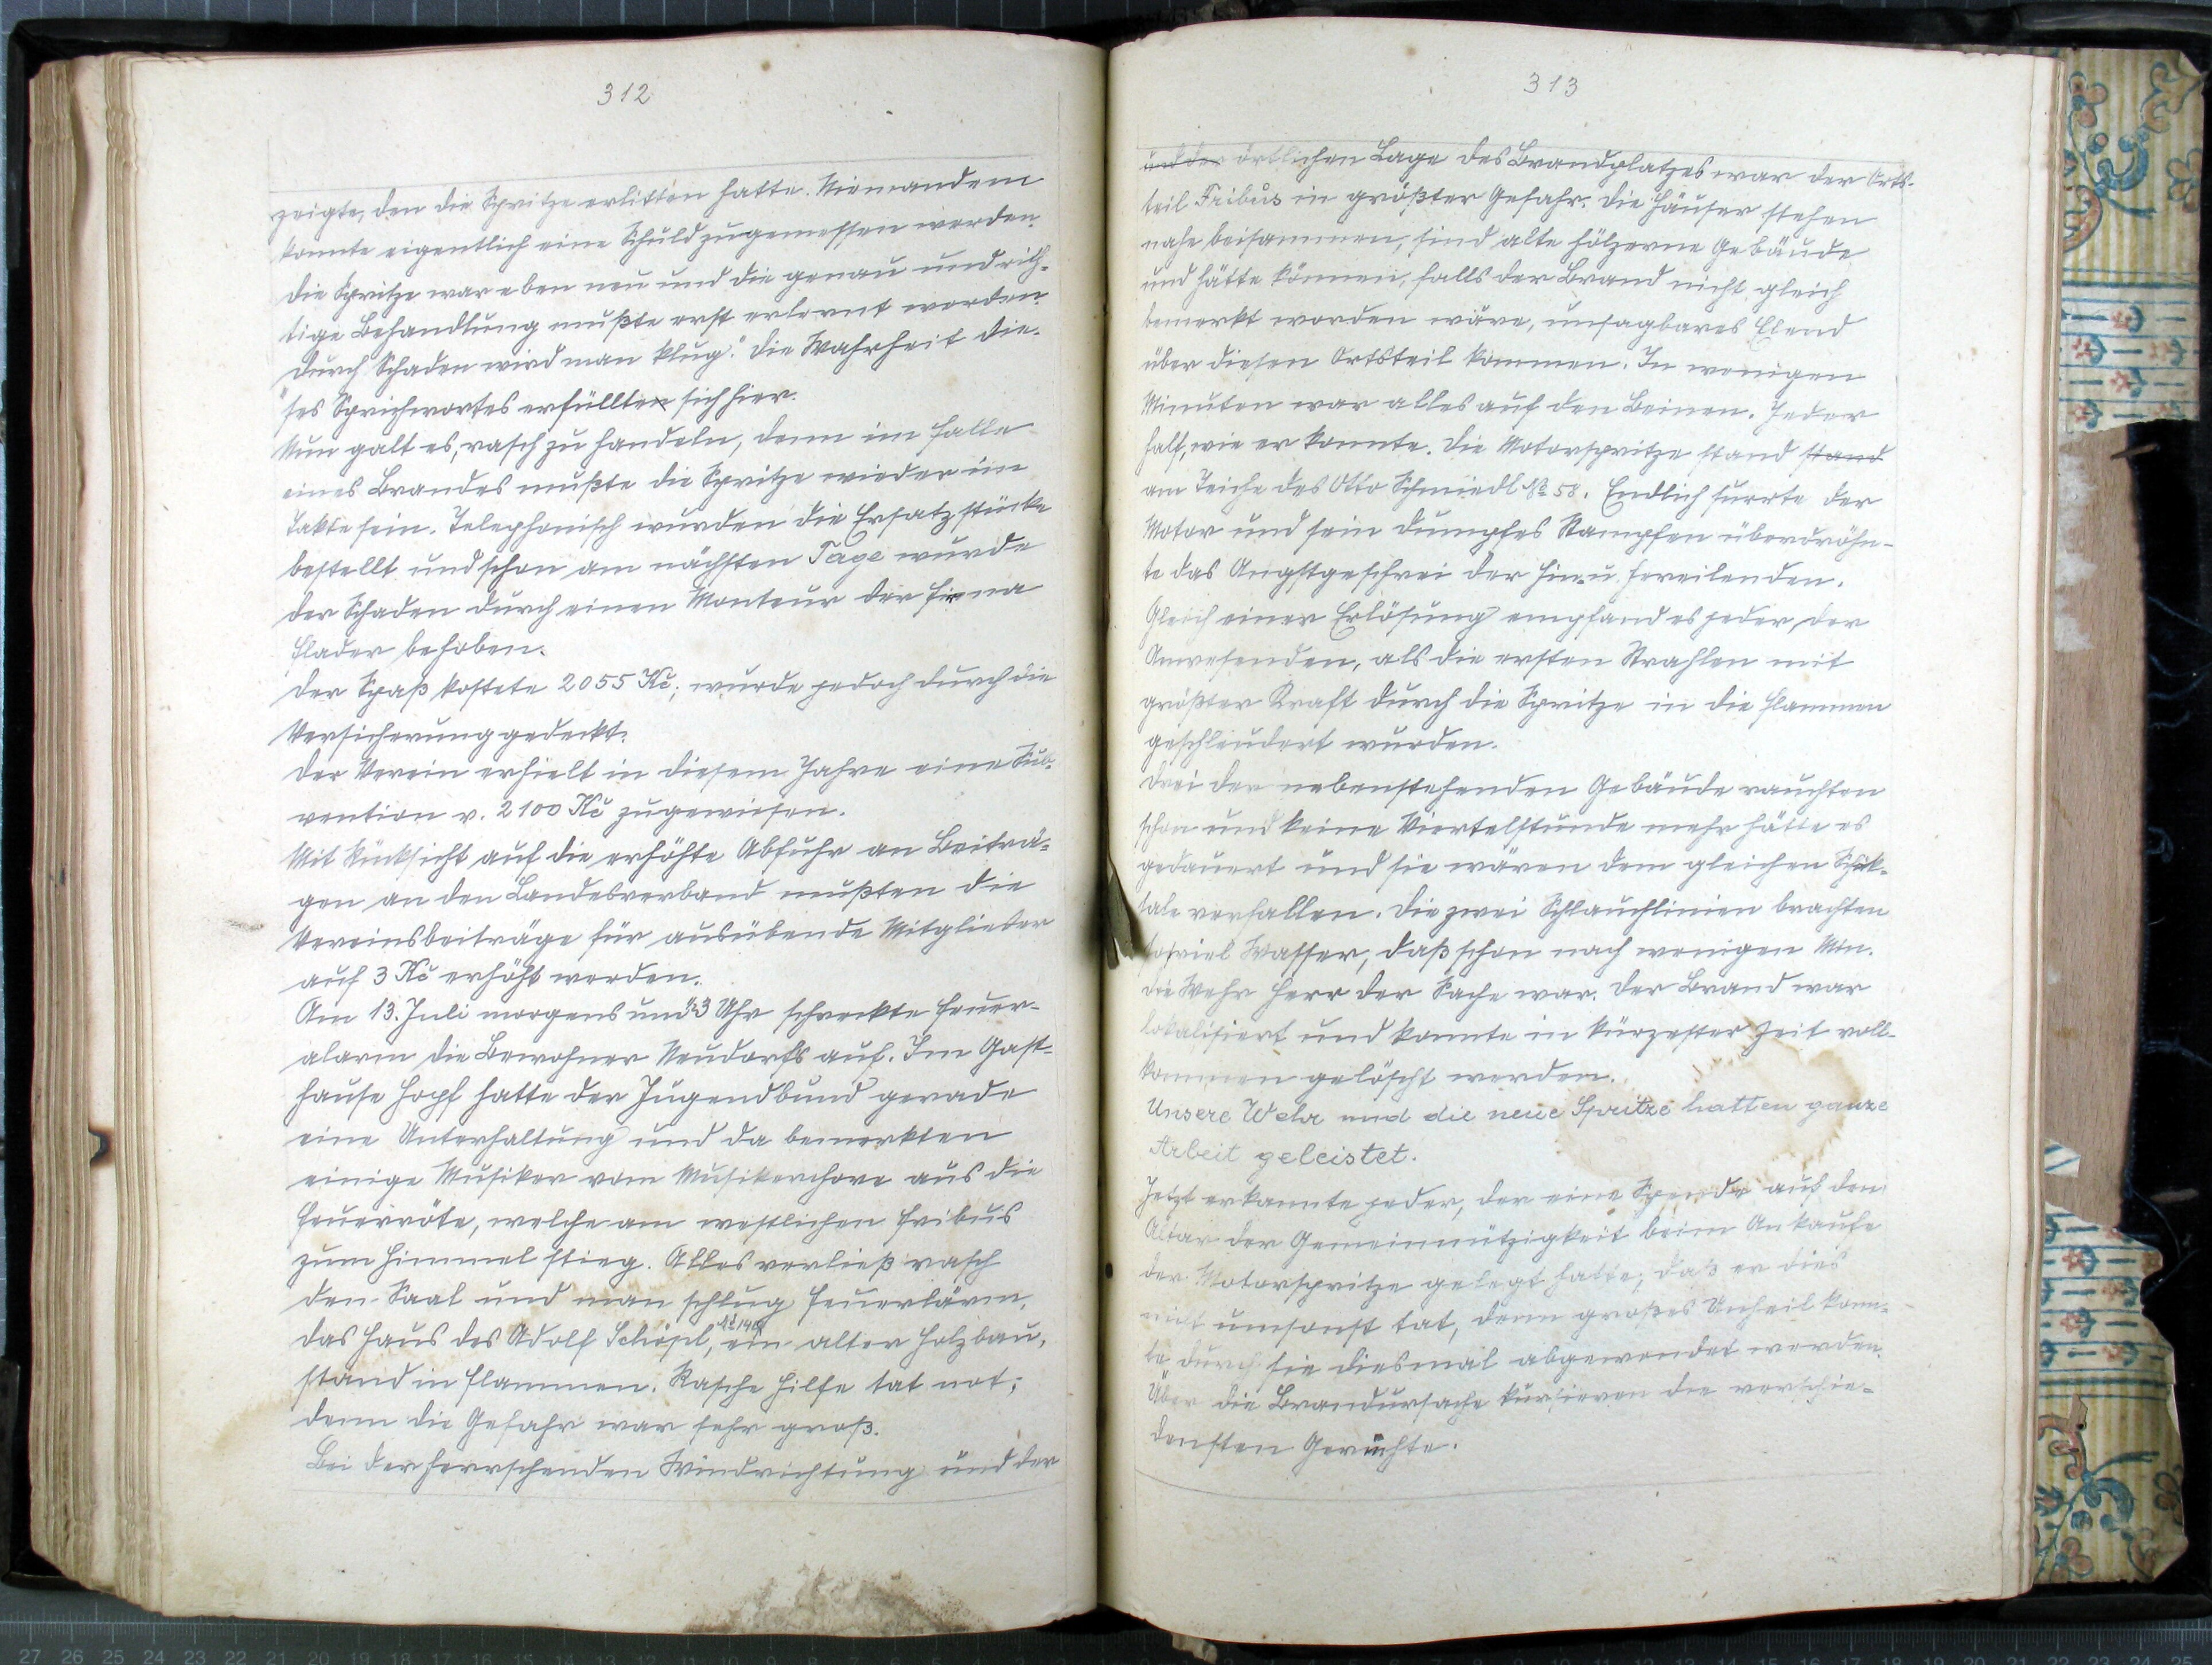 312
zeigte, den die Spritze erlitten hatte. Niemandem
konnte eigentlich eine Schuld zugemessen werden.
Die Spritze war eben neu und die genau und rich-
tige Behandlung mußte erst erlernt werden.
Durch Schaden wird man klug." Die Wahrheit die-
"ses Sprichwortes erfüllten sich hier.
Nun galt es, rasch zu handeln, denn im Falle
eines Brandes mußte die Spritze wieder im
Takte sein. Telephonisch wurden die Ersatzstücke
bestellt und schon am nächsten Tage wurde
der Schaden durch einen Monteur der Firma
Flader behoben.
Der Spaß kostete 2055 Kč; wurde jedoch durch die
Versicherung gedeckt.
Der Verein erhielt in diesem Jahre eine Sub-
vention v. 2100 Kč zugewiesen.
Mit Rücksicht auf die erhöhte Abfuhr an Beiträ-
gen an den Landesverband mußten die
Vereinsbeiträge für ausübende Mitglieder
auf 3 Kč erhöht werden.
Am 13. Juli morgens um ½3 Uhr schreckte Feuer-
alarm die Bewohner Neudorfs auf. Im Gast-
hause Hopf hatte der Jugendbund gerade
eine Unterhaltung und da bemerkten
einige Musiker vom Musikerchore aus die
Feuerröte, welche am westlichen Fribus
zum Himmel stieg. Alles verließ rasch
den Saal und man schlug Feuerlärm.
Das Haus des Adolf Schöpl, № 140 ein alter Holzbau,
stand in Flammen. Rasche Hilfe tat not;
denn die Gefahr war sehr groß.
Bei der herrschenden Windrichtung und der
313
und der örtlichen Lage des Brandplatzes war der Orts-
teil Fribus in größter Gefahr. Die Häuser stehen
nahe beisammen, sind alte hölzerne Gebäude
und hätte können, falls der Brand nicht gleich
bemerkt worden wäre, unsagbares Elend
über diesen Ortsteil kommen. In wenigen
Minuten war alles auf den Beinen. Jeder
half, wie er konnte. Die Motorspritze stand stand
am Teiche des Otto Schmiedl № 58. Endlich surrte der
Motor und sein dumpfes Stampfen überdröhn-
te das Angstgeschrei der Hin- u. Hereilenden.
Gleich einer Erlösung empfand es jeder der
Anwesenden, als die ersten Strahlen mit
größter Kraft durch die Spritze in die Flammen
geschleudert wurden.
Drei der nebenstehenden Gebäude rauchten
schon und keine Viertelstunde mehr hätte es
gedauert und sie wären dem gleichen Schick-
sale verfallen. Die zwei Schlauchlinien brachten
soviel Wasser, daß schon nach wenigen Min.
die Wehr Herr der Sache war. Der Brand war
lokalisiert und konnte in kürzester Zeit voll-
kommen gelöscht werden.
Unsere Wehr und die neue Spritze hatten ganze
Arbeit geleistet.
Jetzt erkannte jeder, der eine Spende auf den
Altar der Gemeinnützigkeit beim Ankaufe
der Motorspritze gelegt hatte, daß er dies
nicht umsonst tat, denn großes Unheil konn-
te durch sie diesmal abgewendet werden.
Über die Brandursache kursieren die verschie-
densten Gerüchte.